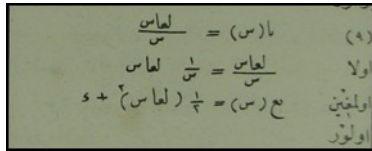 (٩) تا(س) = لعاس / س
اولا لعاس / س = ١ / س لعاس
اولمغين مع (س) = ١ / ٢ (لعاس)٢ + ء
اولور